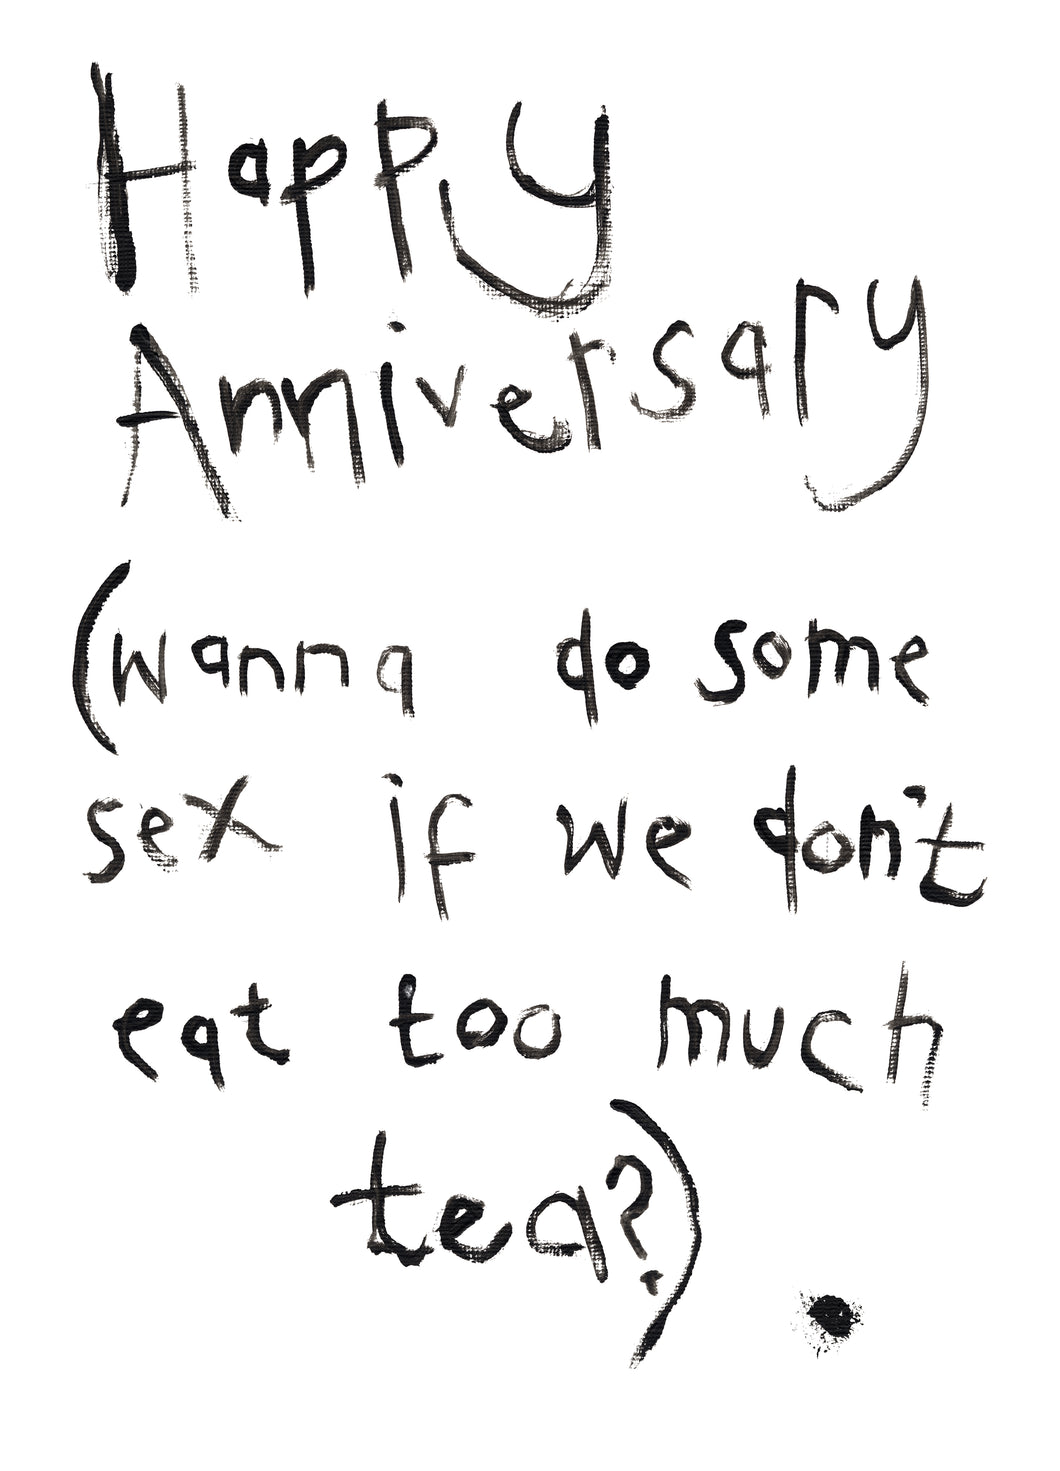 Happy
Anniversary
(wanna do some
sex if we don't
eat too much
tea?)